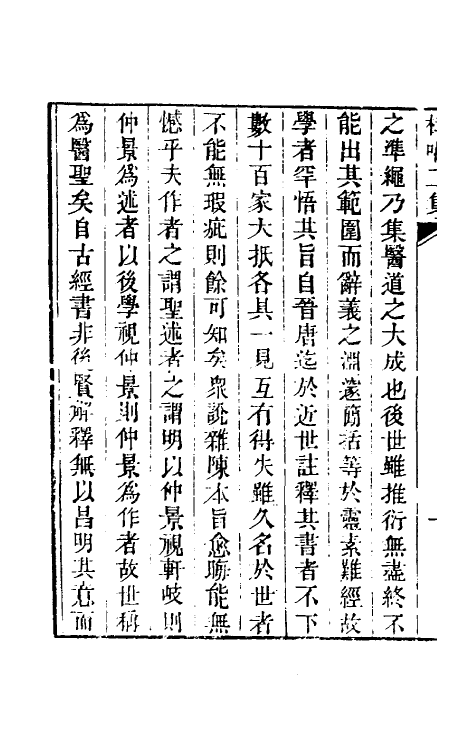 之準繩乃集醫道之大成也後世雖推衍無盡終不
能出其範圍而辭義之淵邃簡括等於靈素難經故
學者罕悟其旨自晉唐迄於近世註釋其書者不下
數十百家大抵各具一見互有得失雖久名於世者
不能無瑕疵則餘可知矣衆說雜陳本旨愈晦能無
憾乎夫作者之謂聖述者之謂明以仲景視軒岐則
仲景爲述者以後學視仲景則仲景爲作者故世稱
爲醫聖矣自古經書非後賢解釋無以昌明其意而